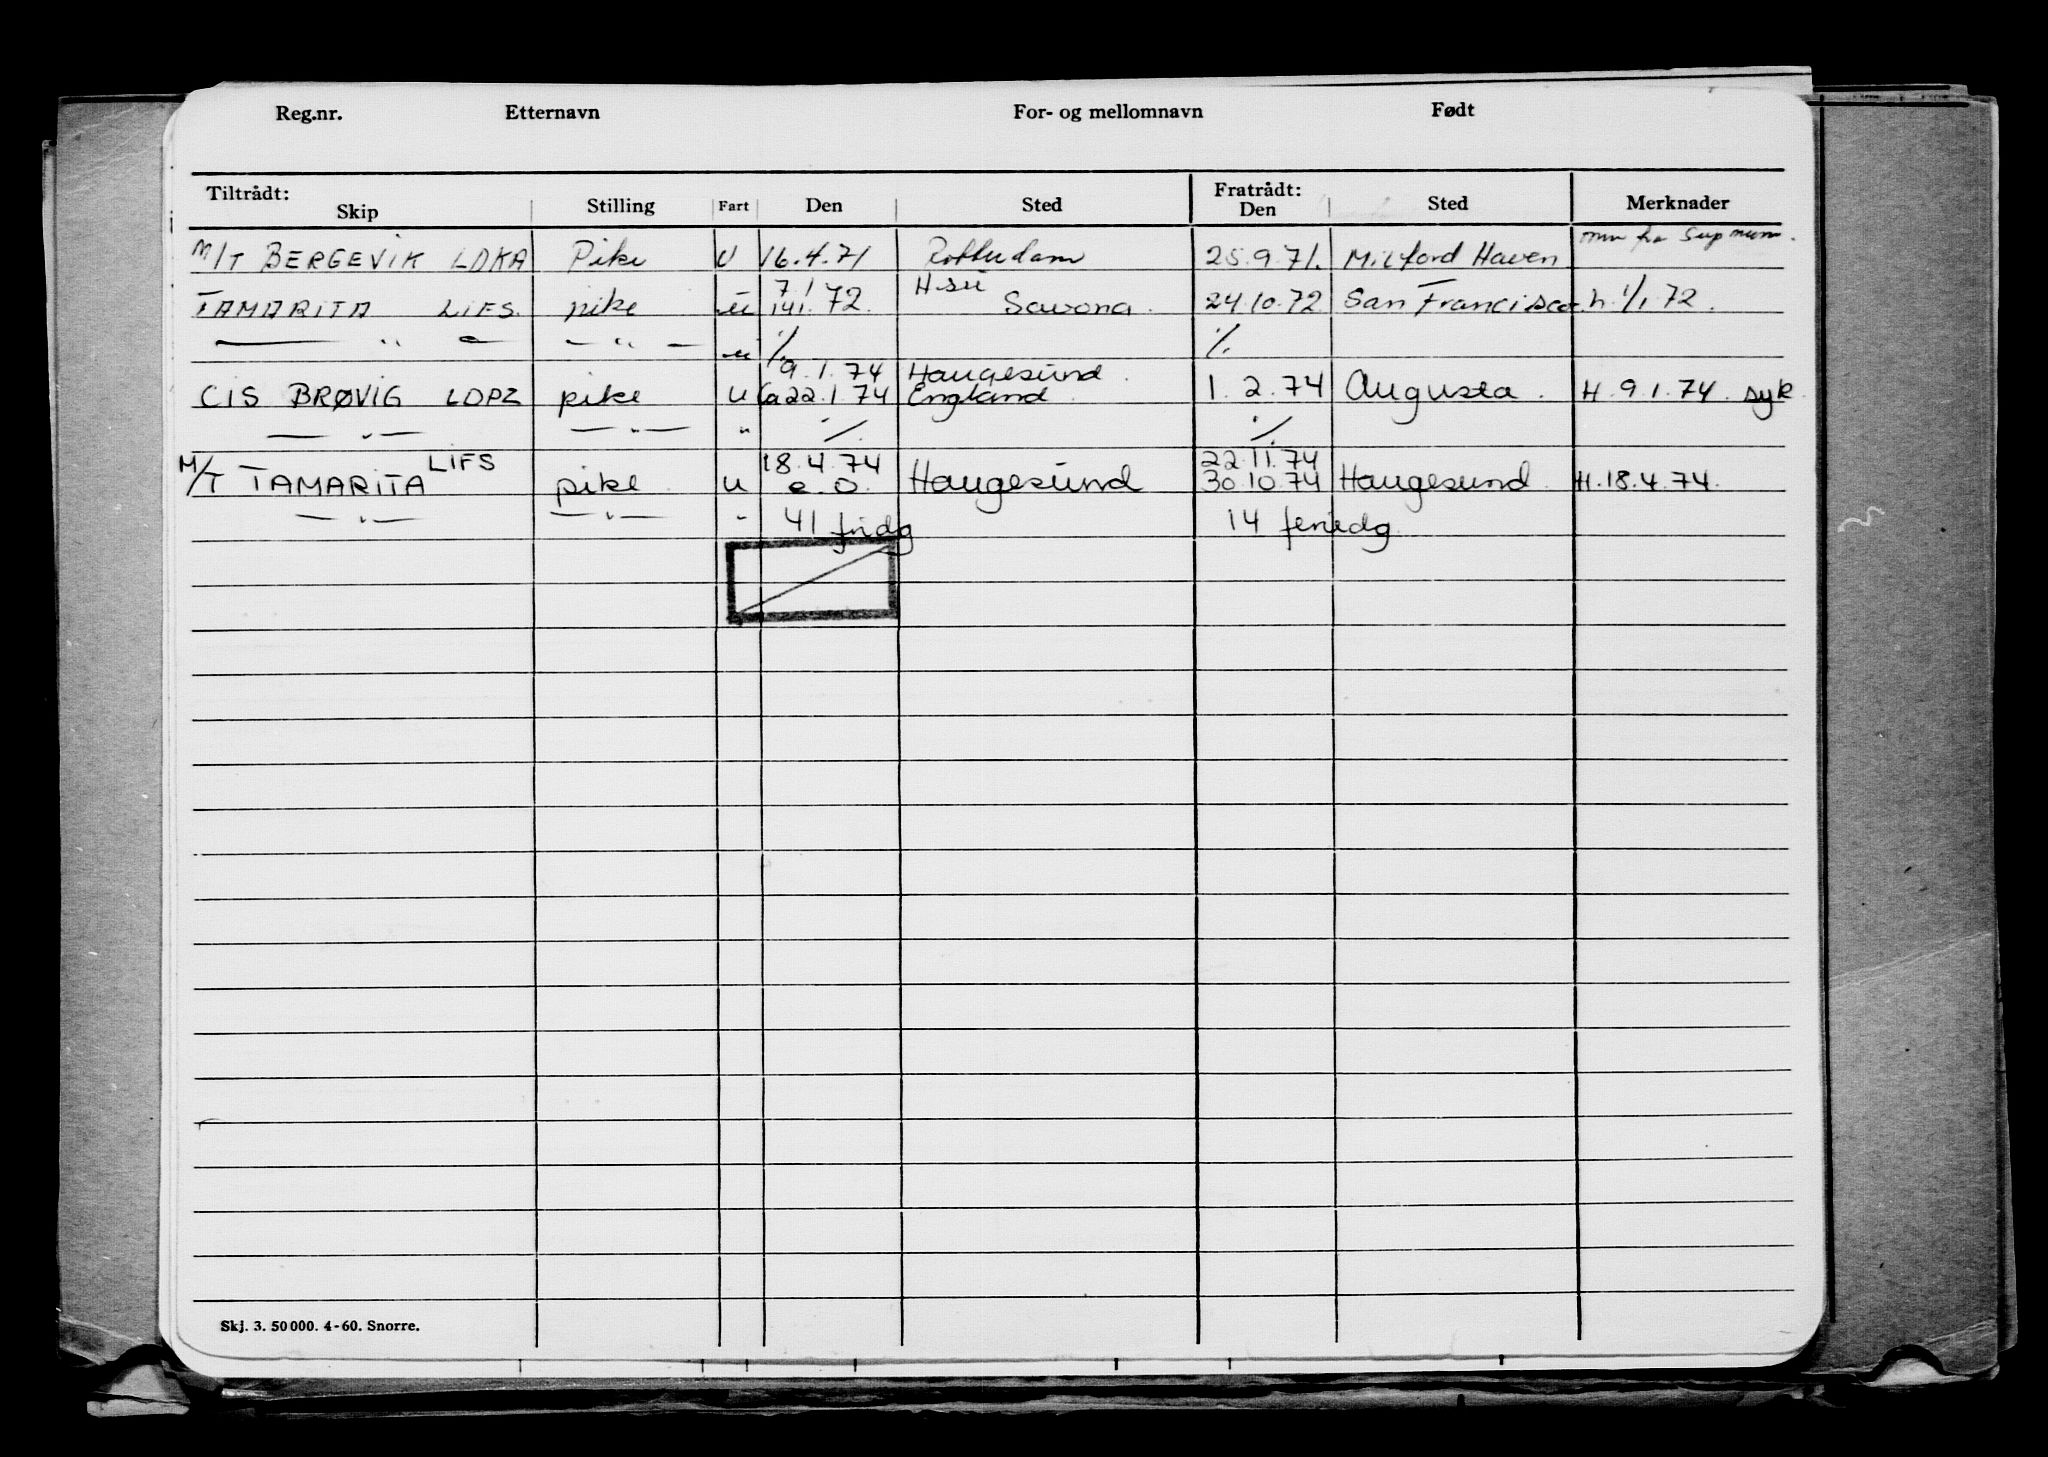 Reg.nr. Etternavn For- og mellomnavn Født
Tiltrådt: Skip Stilling Fart Den Sted Fratrådt: Den Sted Merknader
M/T BERGEVIK LDKA Pike U 16.4.71 Rotterdam 25.9.71. Milford Haven
TAMARITA LIFS. pike u 7/1 14/1. 72. H.su Savona. 24.10.72 San Francisco h. 1/1.72.
— " — — " — u ./. ./.
9.1.74 Haugesund.
CIS BRØVIG LDPZ pike u Ca 22.1.74 England. 1.2.74 Augusta. H. 9.1.74. syk.
— " — — " — " ./. ./.
LIFS 18.4.74 22.11.74
M/T TAMARITA pike u e.o. Haugesund 30.10.74 Haugesund. H. 18.4.74.
— " — — " — " 41 fridg 14 feriedg.
Skj. 3. 50 000. 4-60. Snorre.